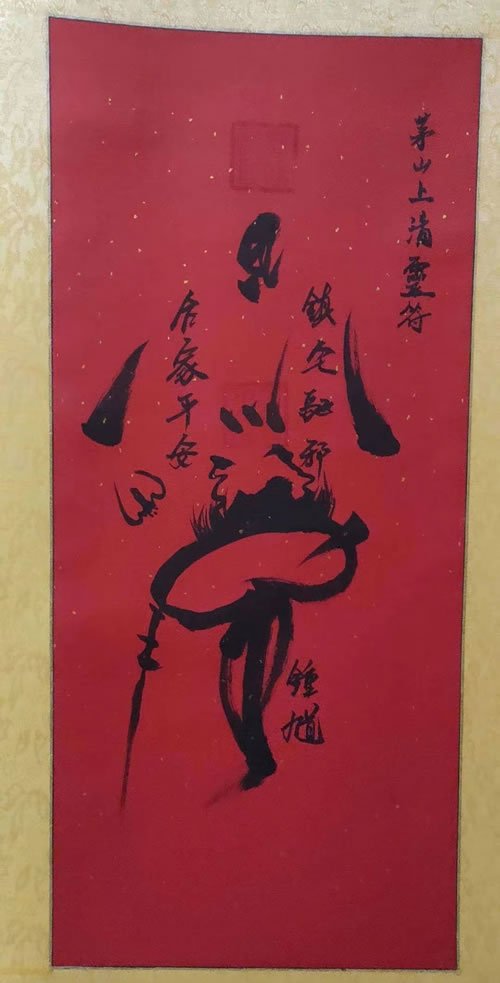 茅山上清靈符
鎮宅驅邪
合家平安
鍾馗